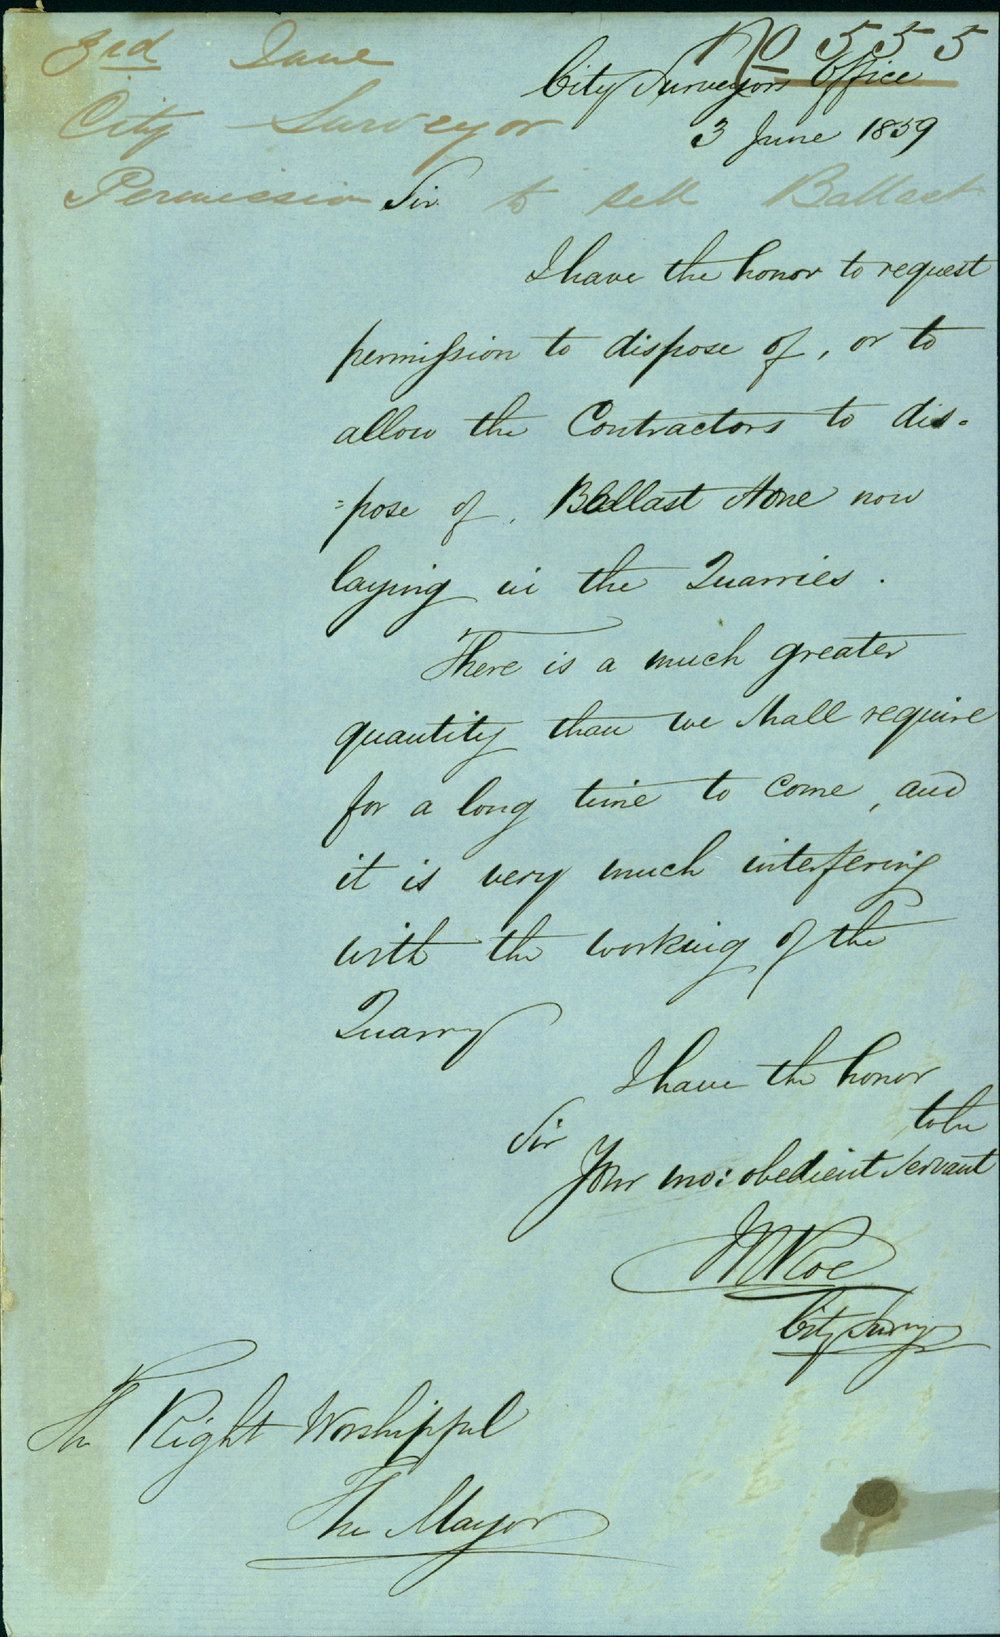 No 555
3rd June
City Surveyor
Permission to sell Ballast
City Surveyors Office
3 June 1859
Sir
I have the honor to request
permission to dispose of, or to
allow the Contractors to dis-
=pose of, Ballast Stone now
laying in the Quarries.
There is a much greater
quantity than we shall require
for a long time to come, and
it is very much interfering
with the working of the
Quarry
I have the honor
to be
Sir
Your mo: obedient servant
City Survyr
The Right Worshipful
The Mayor